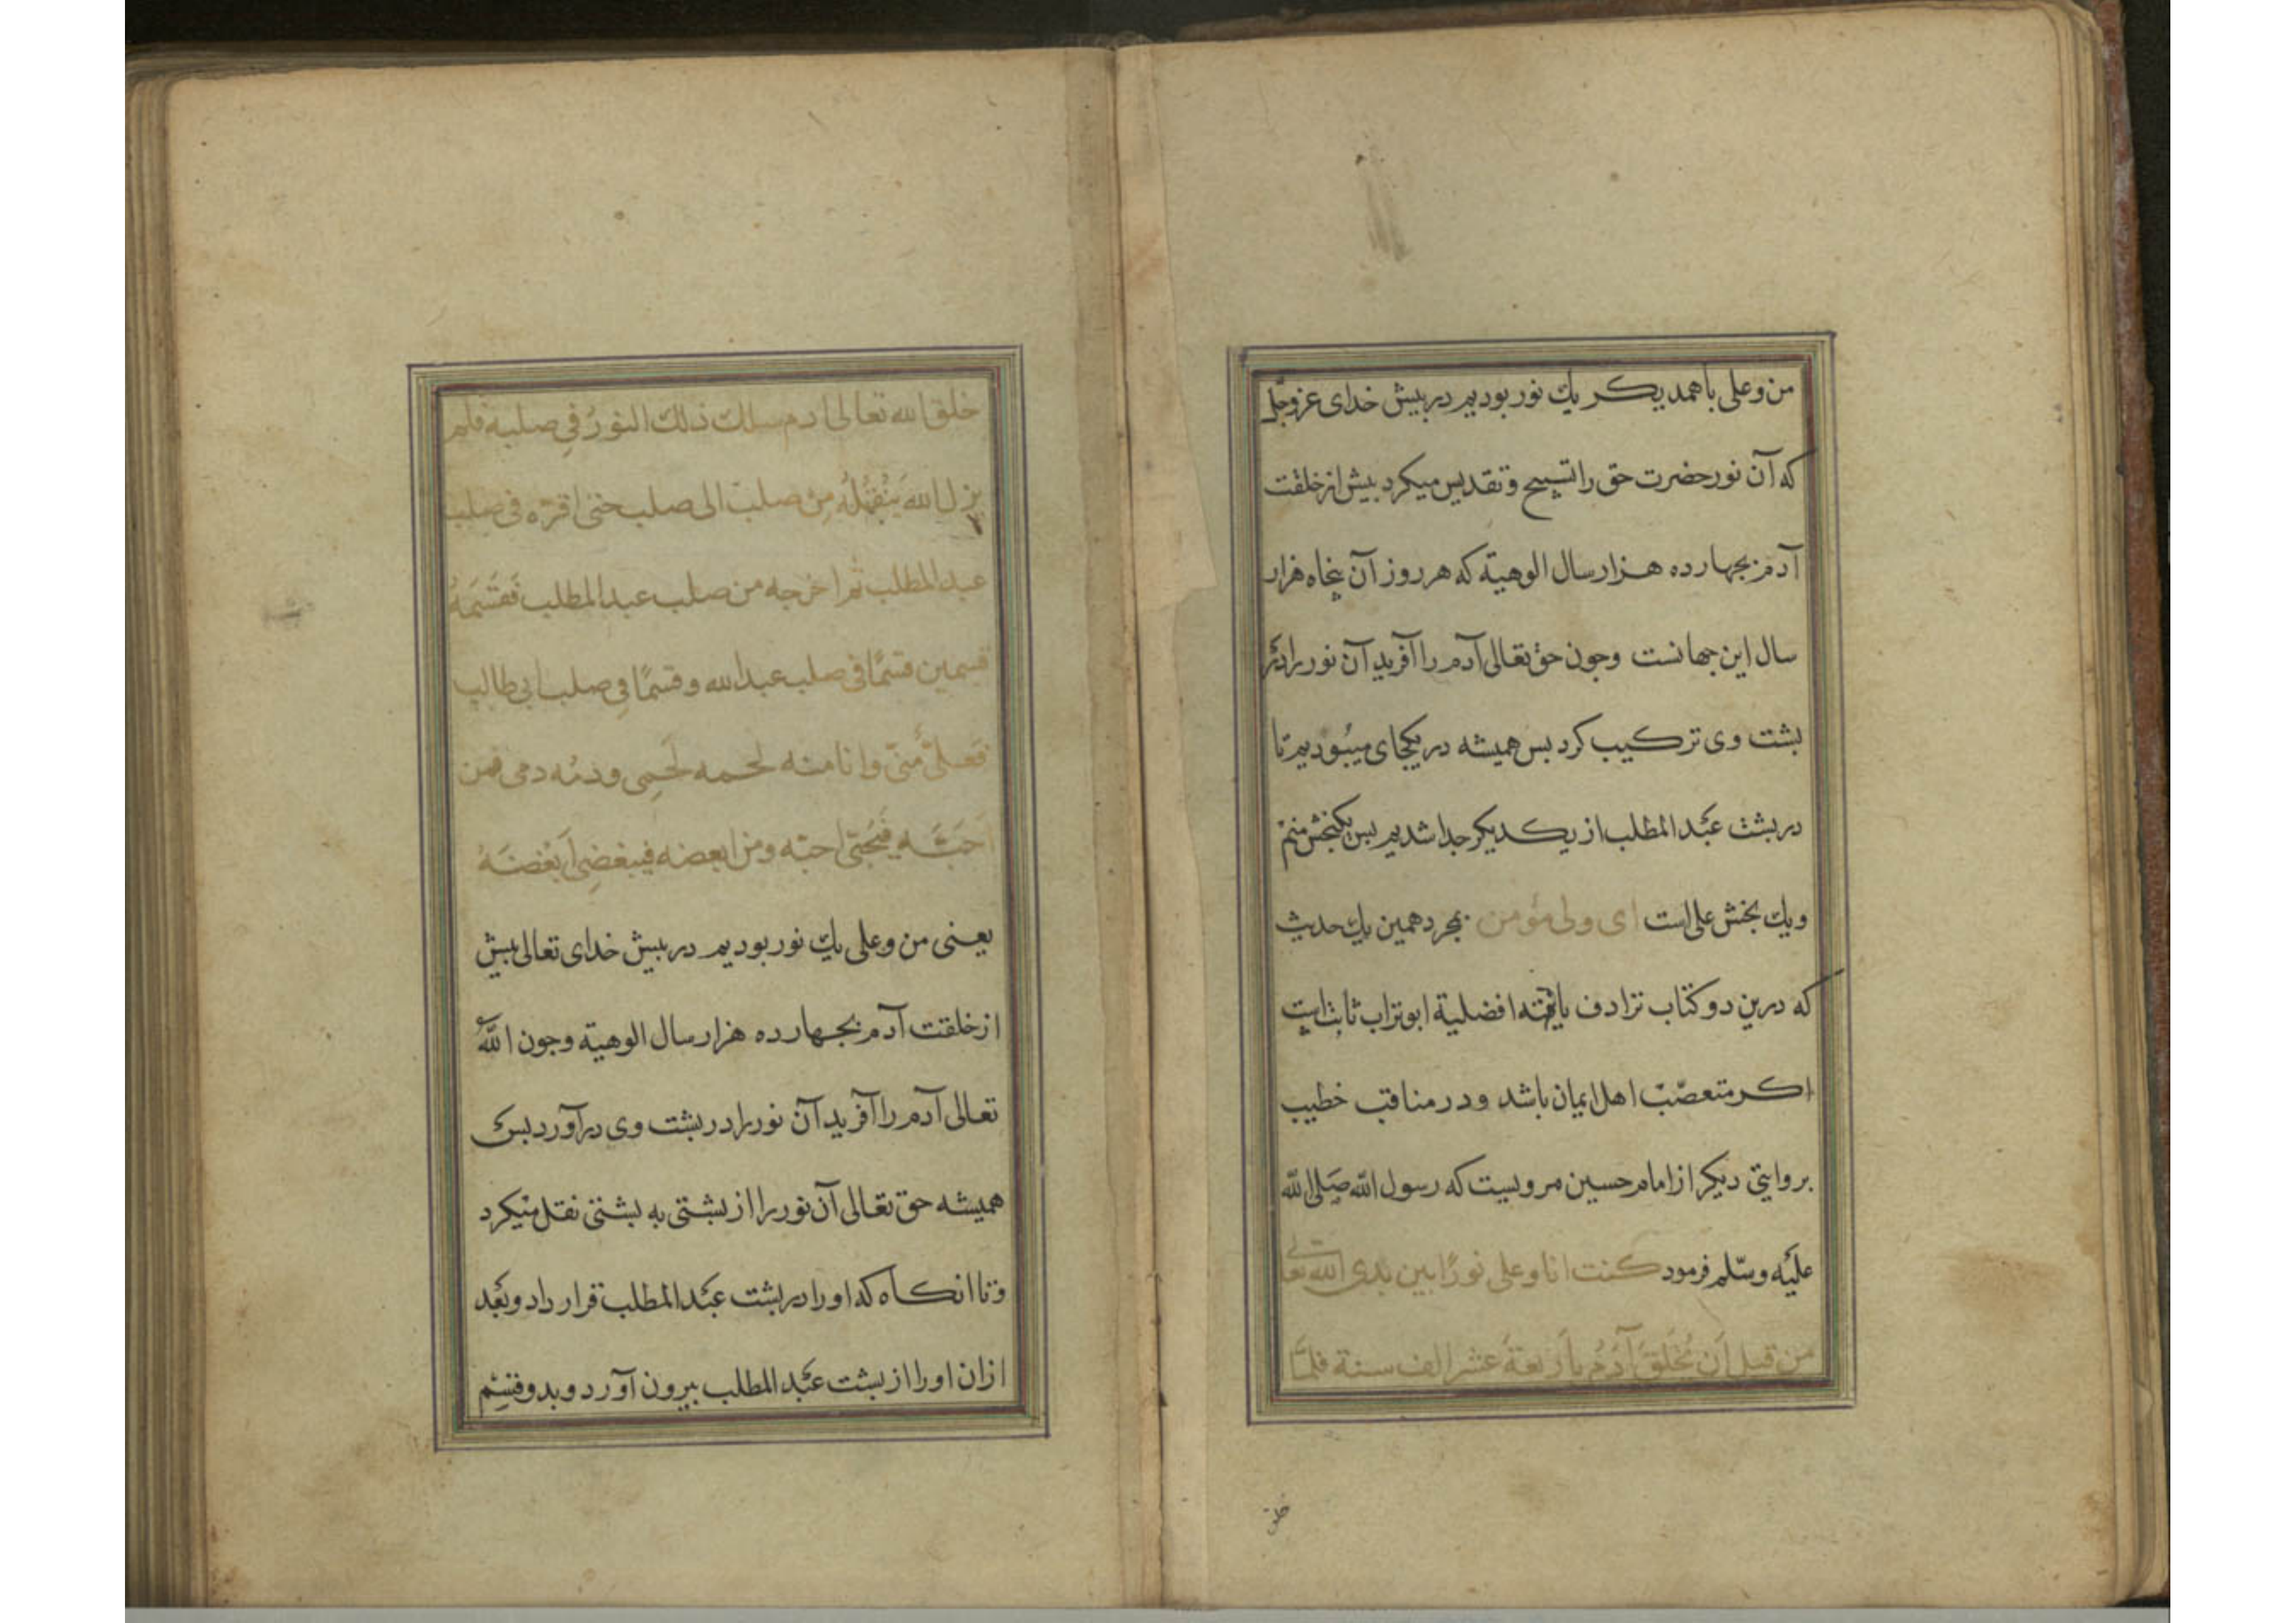 من و علی باهمدیکر یك نور بودیم در بیش خدای عزوجل
که آن نور حضرت حق را تسبیح و تقدیس میکرد بیش از خلقت
آدم بجهارده هزار سال الوهیة که هر روز آن بنجاه هزار
سال این جهانست وجون حق تعالی آدم را آفرید آن نور را در
بشت وی ترکیب کرد بس همیشه در یکجای میبودیم تا
در بشت عبد المطلب از یکدیکر جدا شدیم بس یکبخش منم
ویك بخش علی است ای ولی مؤمن بجرد همین یك حدیث
که درین دو کتاب ترادف یافته افضلیة ابوتراب ثابت است
اکر متعصّب اهل ایمان باشد ودر مناقب خطیب
بروایتی دیکر از امام حسین مرویست که رسول الله صَلی الله
علیه وسّلم فرمود کنت انا وعلی نورًا بین یدی الله تعالی
من قبل اَن یُخلَقَ آدَمُ باَربعةَ عشر الف سنة فلمَّا
خلق
خلق الله تعالی ادم سلك ذلك النورُ فی صلبه فلم
یزل الله یَنْقُلُهُ مِن صلب الی صلب حتی اقرّه فی صلب
عبد المطلب ثم اخرجه من صلب عبد المطلب فَقسَّمَهُ
قسمین قسمًا فی صلب عبد الله وقسمًا فی صلب ابی طالب
فَعلیٌّ مِنّی وانا منه لحمه لَحمِی ودمُه دمی فمن
اَحَبَّه فَبُحبّی احبّه ومن ابغضه فببغضِی اَبْغَضَهُ
یعنی من و علی یك نور بودیم در بیش خدای تعالی بیش
از خلقت آدم بجهارده هزار سال الوهیة وجون الله
تعالی آدم را آفرید آن نور را در بشت وی درآورد بس
همیشه حق تعالی آن نور را از بشتی به بشتی نقل میکرد
وتا انکاه که اورا در بشت عبد المطلب قرار داد وبعد
ازان اورا از بشت عبد المطلب بیرون آورد و بدو قسم